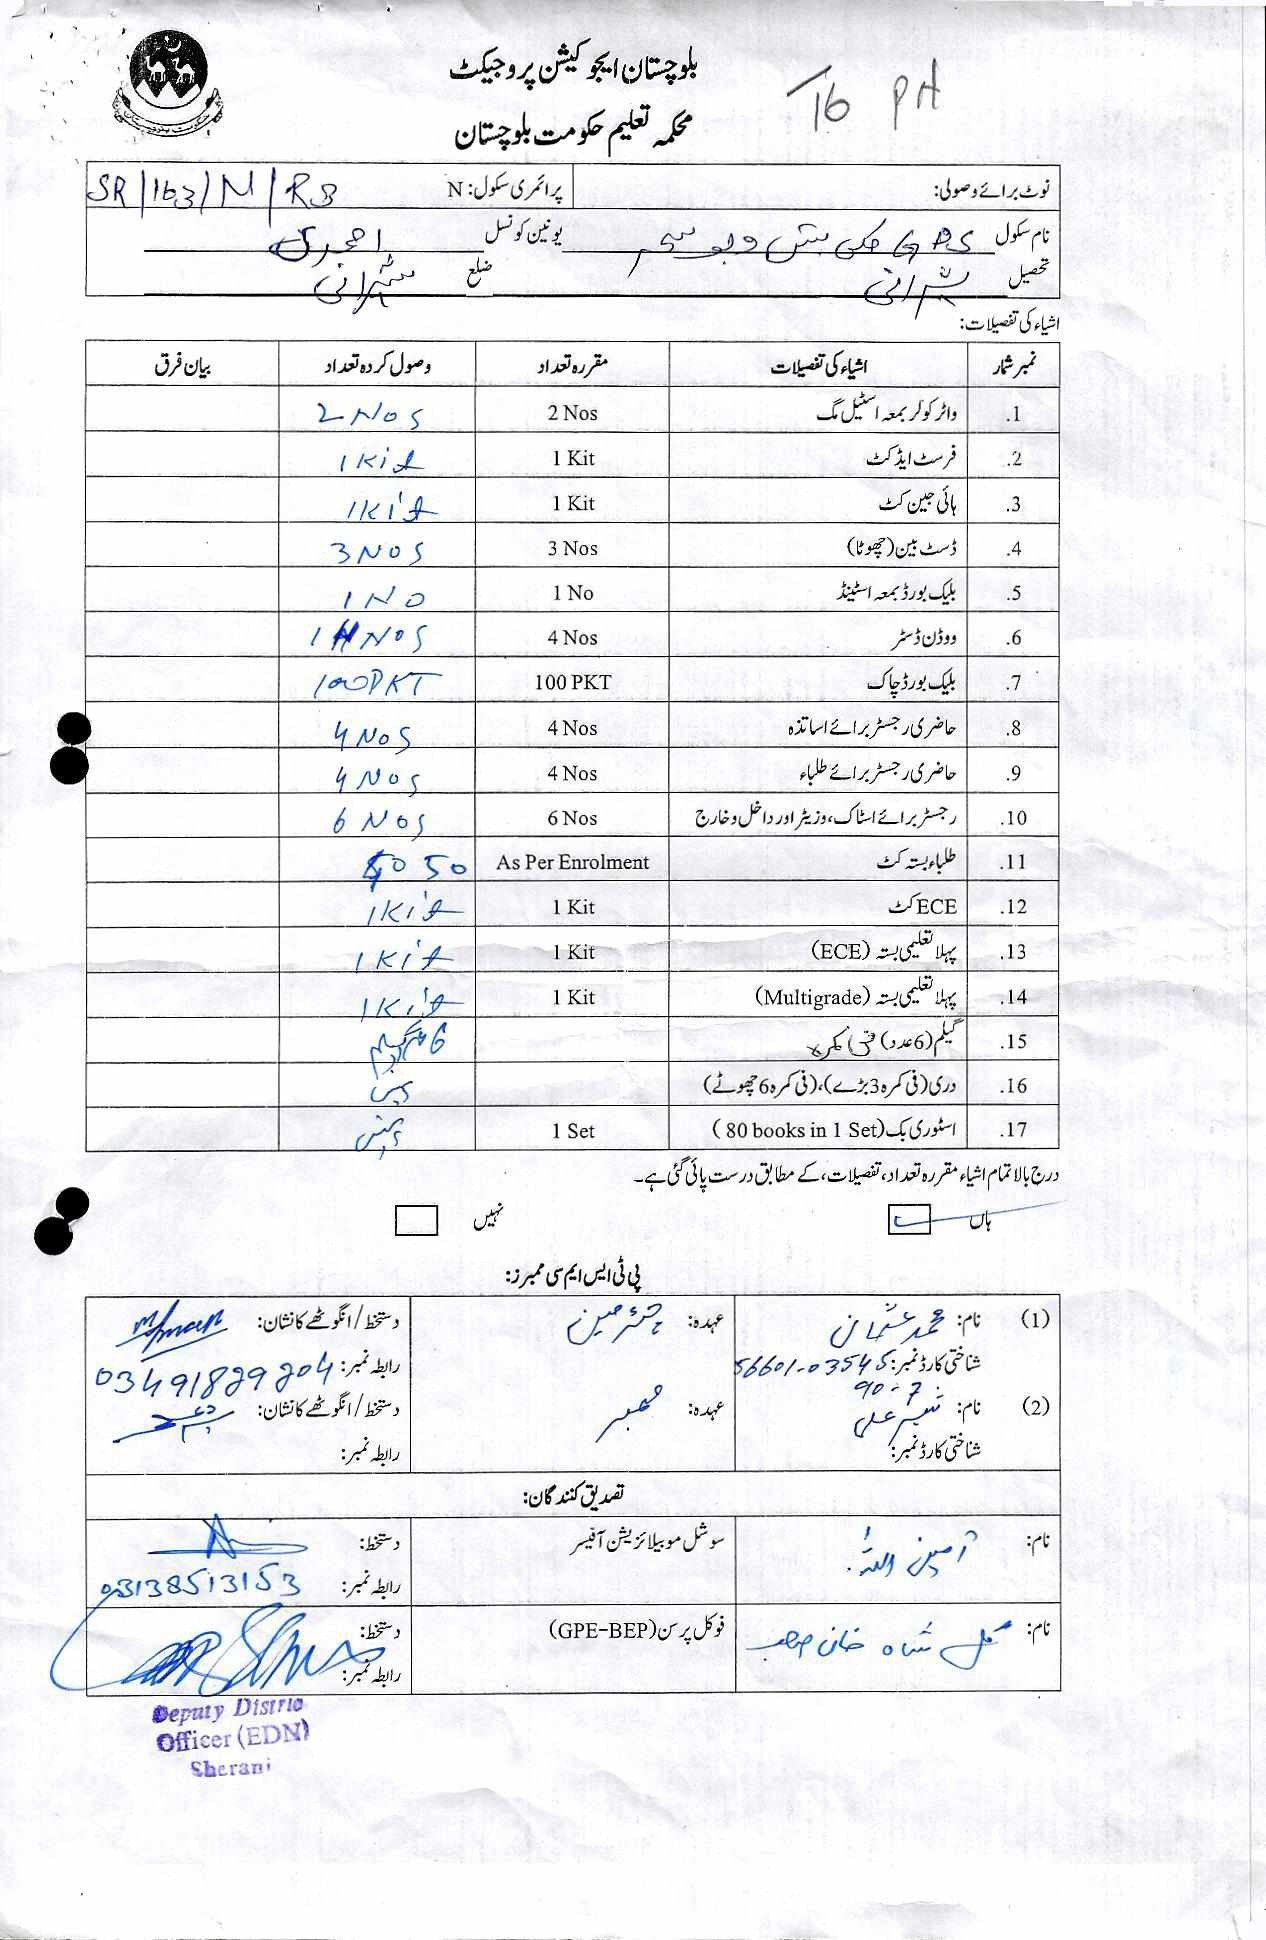 بلوچستان ایجوکیشن پروجیکٹ
T6 PH
محکمہ تعلیم حکومت بلوچستان
نوٹ برائے وصولی: پرائمری سکول: N SR/163/N/RB
نام سکول GPS یونین کونسل
تحصیل شیرانی ضلع شیرانی
اشیاء کی تفصیلات:
نمبر شمار اشیاء کی تفصیلات مقررہ تعداد وصول کردہ تعداد بیان فرق
1. واٹر کولر بمعہ اسٹیل مگ 2 Nos 2 Nos
2. فرسٹ ایڈ کٹ 1 Kit 1 Kit
3. ہائی جین کٹ 1 Kit 1 Kit
4. ڈسٹ بین (چھوٹا) 3 Nos 3 Nos
5. بلیک بورڈ بمعہ اسٹینڈ 1 No 1 No
6. ووڈن ڈسٹر 4 Nos Nos
7. بلیک بورڈ چاک 100 PKT 100 PKT
8. حاضری رجسٹر برائے اساتذہ 4 Nos 4 Nos
9. حاضری رجسٹر برائے طلباء 4 Nos 4 Nos
10. رجسٹر برائے اسٹاک، وزیٹر اور داخل و خارج 6 Nos 6 Nos
11. طلباء بستہ کٹ As Per Enrolment 50
12. ECE کٹ 1 Kit 1 Kit
13. پہلا تعلیمی بستہ (ECE) 1 Kit 1 Kit
14. پہلا تعلیمی بستہ (Multigrade) 1 Kit 1 Kit
15. گیلم (6 عدد) فی کمرہ 6
16. دری (فی کمرہ 3 بڑے)، (فی کمرہ 6 چھوٹے)
17. اسٹوری بک (80 books in 1 Set) 1 Set
درج بالا تمام اشیاء مقررہ تعداد، تفصیلات، کے مطابق درست پائی گئی ہے۔
ہاں نہیں
پی ٹی ایس ایم سی ممبرز:
(1) نام: محمد عثمان عہدہ: چئیرمین دستخط/انگوٹھے کا نشان:
شناختی کارڈ نمبر: 56601-03545 رابطہ نمبر: 03491829204
90-7
(2) نام: عہدہ: ممبر دستخط/انگوٹھے کا نشان:
شناختی کارڈ نمبر: رابطہ نمبر:
تصدیق کنندگان:
نام: امین اللہ سوشل موبیلائزیشن آفیسر دستخط:
رابطہ نمبر: 03138513153
نام: گل شاہ خان فوکل پرسن (GPE-BEP) دستخط:
رابطہ نمبر:
Deputy District
Officer (EDN)
Sherani